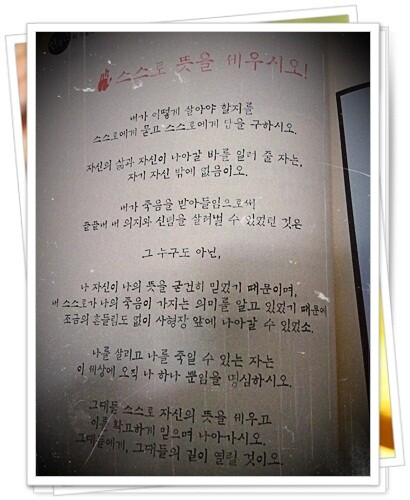 스스로 뜻을 세우시오!
내가 어떻게 살아야 할지를
스스로에게 묻고 스스로에게 답을 구하시오.
자신의 삶과 자신이 나아갈 바를 일러 줄 자는,
자기 자신 밖에 없음이오.
내가 죽음을 받아들임으로써
끝끝내 내 의지와 신념을 살려낼 수 있었던 것은
그 누구도 아닌,
나 자신이 나의 뜻을 굳건히 믿었기 때문이며,
내 스스로가 나의 죽음이 가지는 의미를 알고 있었기 때문에
조금의 흔들림도 없이 사형장 앞에 나아갈 수 있었소.
나를 살리고 나를 죽일 수 있는 자는
이 세상에 오직 나 하나 뿐임을 명심하시오.
그대들 스스로 자신의 뜻을 세우고
이를 확고하게 믿으며 나아가시오.
그대들에게, 그대들의 길이 열릴 것이오.